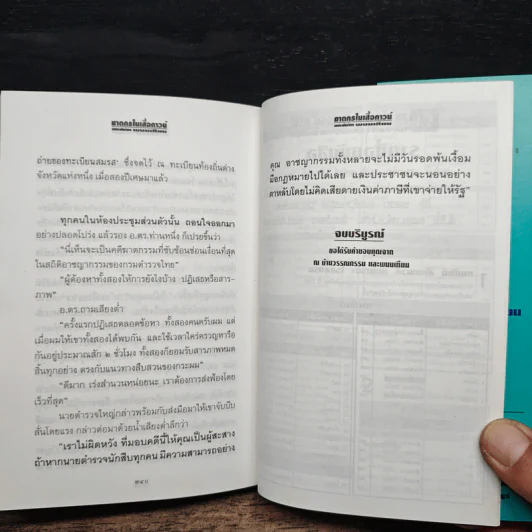 ฆาตกรในเสื้อกาวน์
ถ่ายของทะเบียนสมรส' ซึ่งจดไว้ ณ ทะเบียนท้องถิ่นต่าง
จังหวัดแห่งหนึ่ง เมื่อสองปีเศษมาแล้ว
ทุกคนในห้องประชุมส่วนตัวนั้น ถอนใจออกมา
อย่างปลอดโปร่ง แล้วรอง อ.ตร.ท่านหนึ่ง ก็เปรยขึ้นว่า
"นี่เห็นจะเป็นคดีฆาตกรรมที่ซับซ้อนซ่อนเงื่อนที่สุด
ในสถิติอาชญากรรมของกรมตำรวจไทย"
"ผู้ต้องหาทั้งสองให้การยังไงบ้าง ปฏิเสธหรือสาร-
ภาพ"
อ.ตร.ถามเสียงต่ำ
"ครั้งแรกปฏิเสธตลอดข้อหา ทั้งสองคนครับผม แต่
เมื่อผมให้เขาทั้งสองได้พบกัน และใช้เวลาใคร่ครวญหารือ
กันอยู่ประมาณสัก ๒ ชั่วโมง ทั้งสองก็ยอมรับสารภาพหมด
สิ้นทุกอย่าง ตรงกับแนวทางสืบสวนของกระผม"
"ดีมาก เร่งสำนวนหน่อยนะ เราต้องการส่งฟ้องโดย
เร็วที่สุด"
นายตำรวจใหญ่กล่าวพร้อมกับส่งมือมาให้เขาจับบีบ
สั่นโดยแรง กล่าวต่อมาด้วยน้ำเสียงต่ำลึกว่า
"เราไม่ผิดหวัง ที่มอบคดีนี้ให้คุณเป็นผู้สะสาง
ถ้าหากนายตำรวจนักสืบทุกคน มีความสามารถอย่าง
ฆาตกรในเสื้อกาวน์
คุณ อาชญากรรมทั้งหลายจะไม่มีวันรอดพ้นเงื้อม
มือกฎหมายไปได้เลย และประชาชนจะนอนอย่าง
ตาหลับโดยไม่คิดเสียดายเงินค่าภาษีที่เขาจ่ายให้รัฐ"
จบบริบูรณ์
ขอได้รับคำขอบคุณจาก
ณ บ้านวรรณกรรม และพนมเทียน